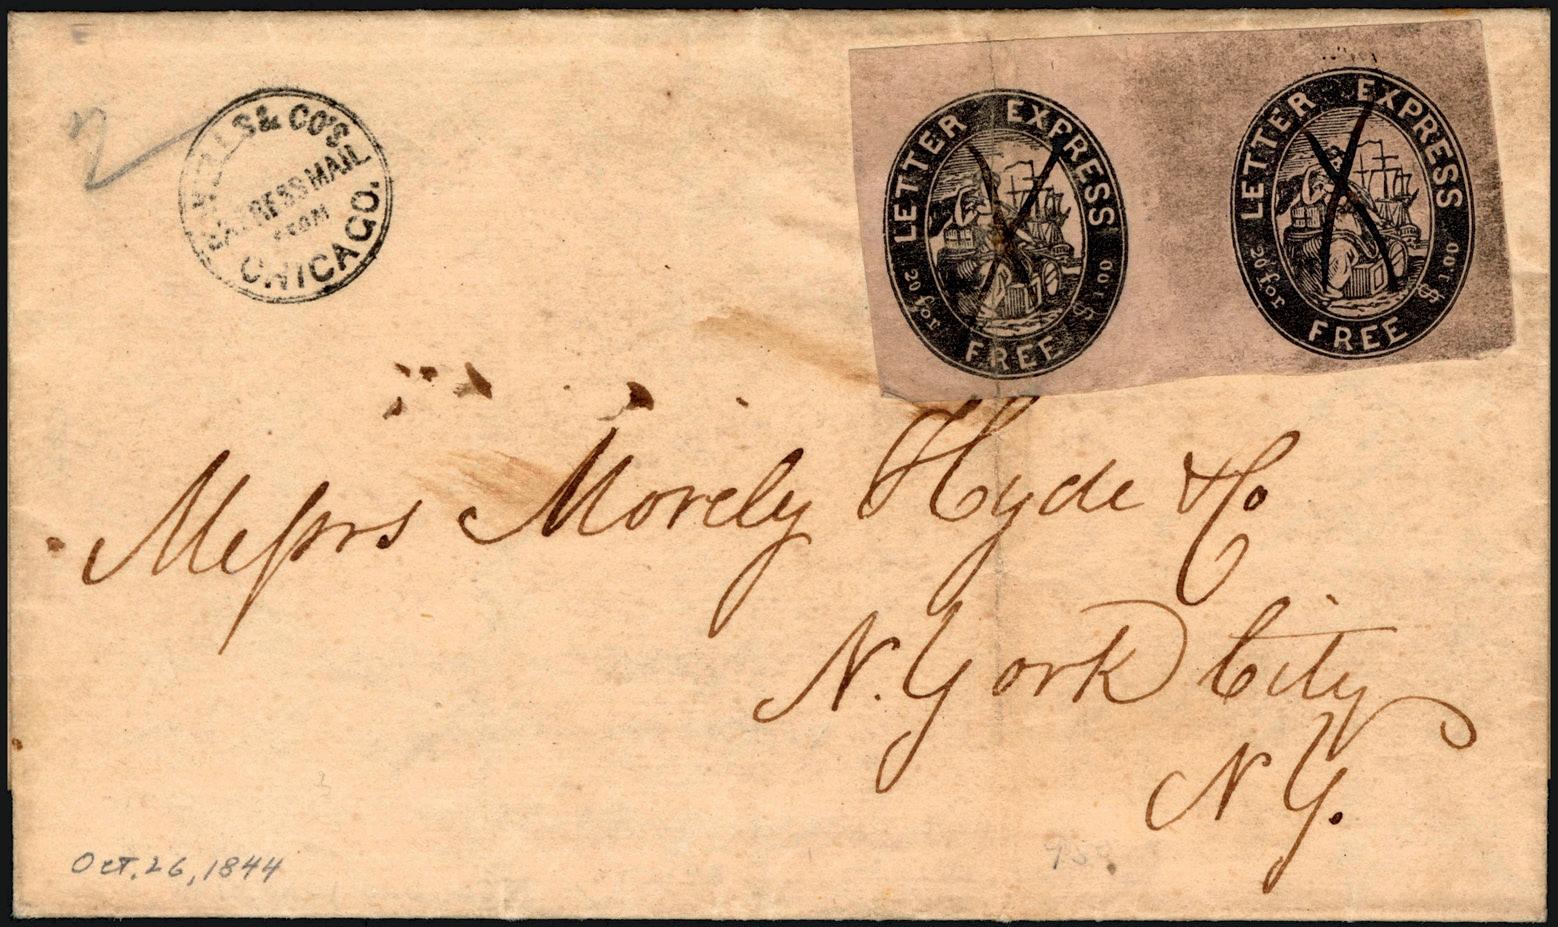 2
WELLS & CO'S
EXPRESS MAIL
FROM
CHICAGO.
LETTER EXPRESS
20 for $1.00
FREE
LETTER EXPRESS
20 for $1.00
FREE
Messrs Morely Hyde & Co
N. York City
N Y.
Oct. 26, 1844